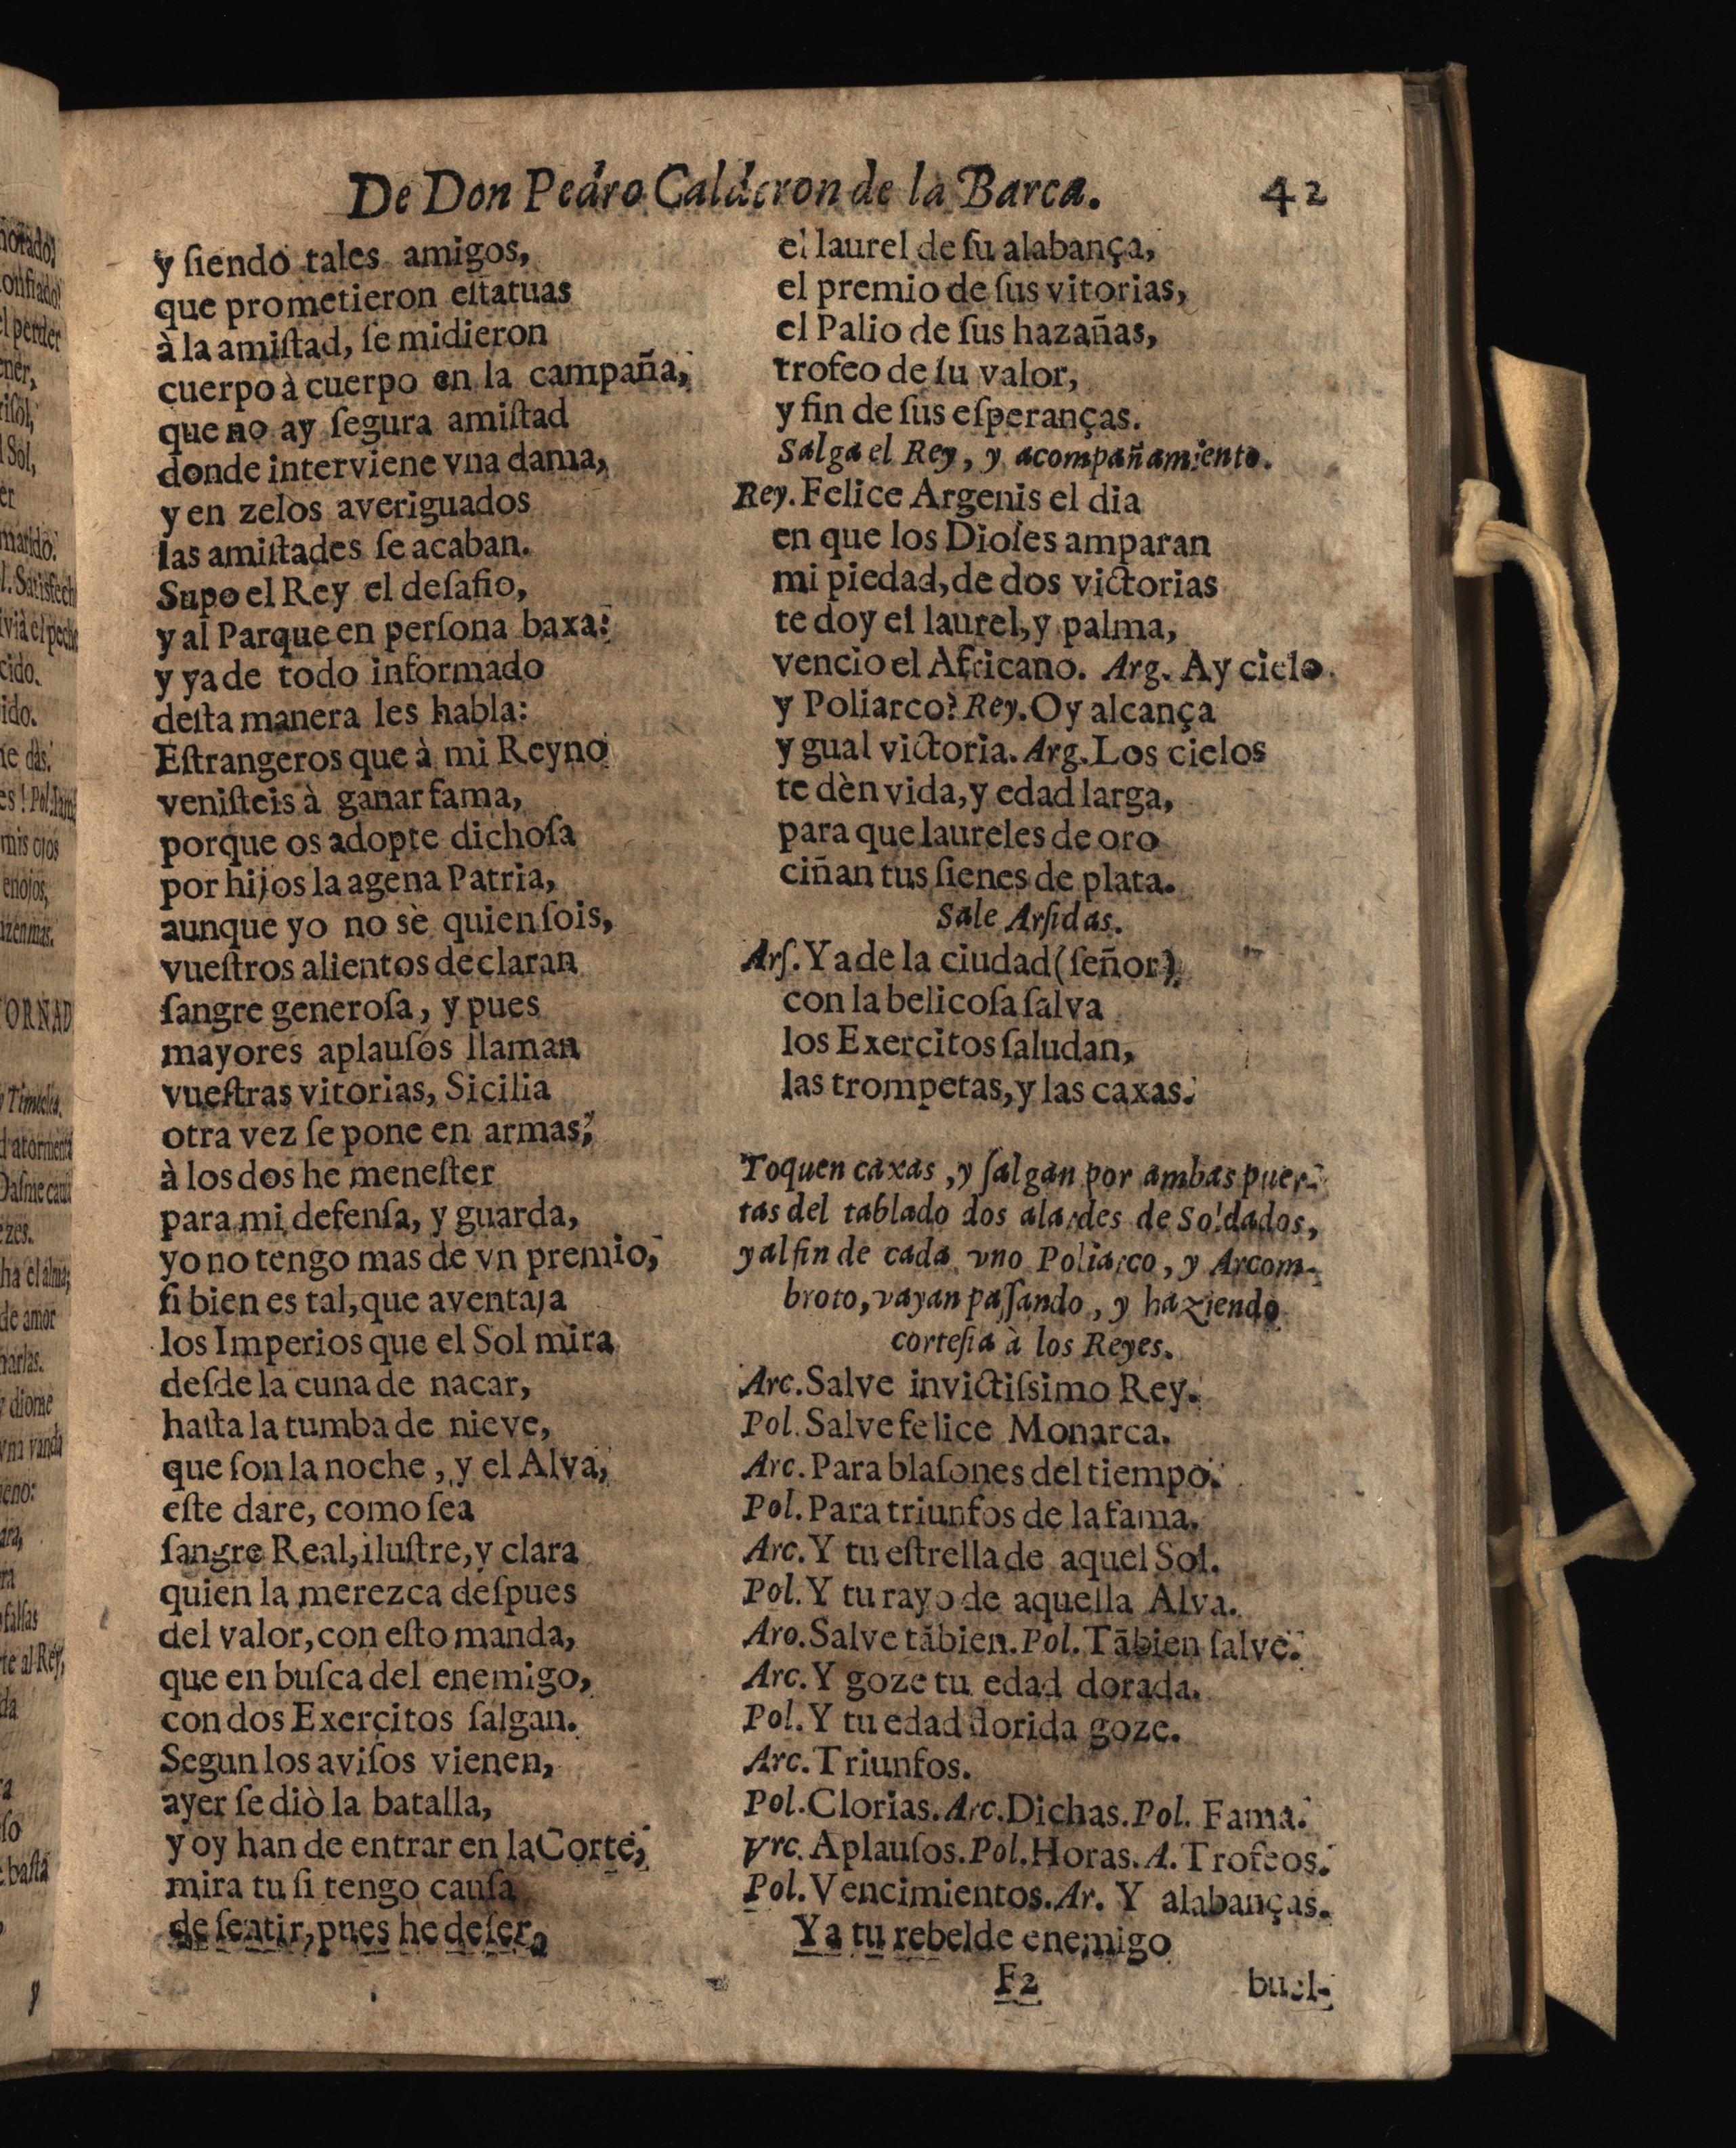 De Don Pedro Calderon de la Barca. 42
y ſiendo tales amigos,
que prometieron eſtatuas
à la amiſtad, ſe midieron
cuerpo à cuerpo en la campaña,
que no ay ſegura amiſtad
donde interviene vna dama,
y en zelos averiguados
las amiſtades ſe acaban.
Supo el Rey el deſafio,
y al Parque en perſona baxa:
y ya de todo informado
deſta manera les habla:
Eſtrangeros que à mi Reyno
veniſteis à ganar fama,
porque os adopte dichoſa
por hijos la agena Patria,
aunque yo no sè quien ſois,
vueſtros alientos declaran
ſangre generoſa, y pues
mayores aplauſos llaman
vueſtras vitorias, Sicilia
otra vez ſe pone en armas,
à los dos he meneſter
para mi defenſa, y guarda,
yo no tengo mas de vn premio,
ſi bien es tal, que aventaja
los Imperios que el Sol mira
deſde la cuna de nacar,
haſta la tumba de nieve,
que ſon la noche, y el Alva,
eſte dare, como ſea
ſangre Real, iluſtre, y clara
quien la merezca deſpues
del valor, con eſto manda,
que en buſca del enemigo,
con dos Exercitos ſalgan.
Segun los aviſos vienen,
ayer ſe diò la batalla,
y oy han de entrar en la Corte,
mira tu ſi tengo cauſa
de ſentir, pues he de ſer,
el laurel de ſu alabança,
el premio de ſus vitorias,
el Palio de ſus hazañas,
trofeo de ſu valor,
y fin de ſus eſperanças.
Salga el Rey, y acompañamiento.
Rey. Felice Argenis el dia
en que los Dioſes amparan
mi piedad, de dos victorias
te doy el laurel, y palma,
vencio el Africano. Arg. Ay cielo.
y Poliarco? Rey. Oy alcança
ygual victoria. Arg. Los cielos
te dèn vida, y edad larga,
para que laureles de oro
ciñan tus ſienes de plata.
Sale Arſidas.
Arſ. Ya de la ciudad (ſeñor)
con la belicoſa ſalva
los Exercitos ſaludan,
las trompetas, y las caxas.
Toquen caxas, y ſalgan por ambas puer-
tas del tablado dos alardes de Soldados,
y al fin de cada vno Poliarco, y Arcom-
broto, vayan paſſando, y haziendo
corteſia à los Reyes.
Arc. Salve invictiſsimo Rey.
Pol. Salve felice Monarca.
Arc. Para blaſones del tiempo.
Pol. Para triunfos de la fama.
Arc. Y tu eſtrella de aquel Sol.
Pol. Y tu rayo de aquella Alva.
Aro. Salve tābien. Pol. Tābien ſalve.
Arc. Y goze tu edad dorada.
Pol. Y tu edad florida goze.
Arc. Triunfos.
Pol. Clorias. Arc. Dichas. Pol. Fama.
Vrc. Aplauſos. Pol. Horas. A. Trofeos.
Pol. Vencimientos. Ar. Y alabanças.
Ya tu rebelde enemigo
F2 buel-